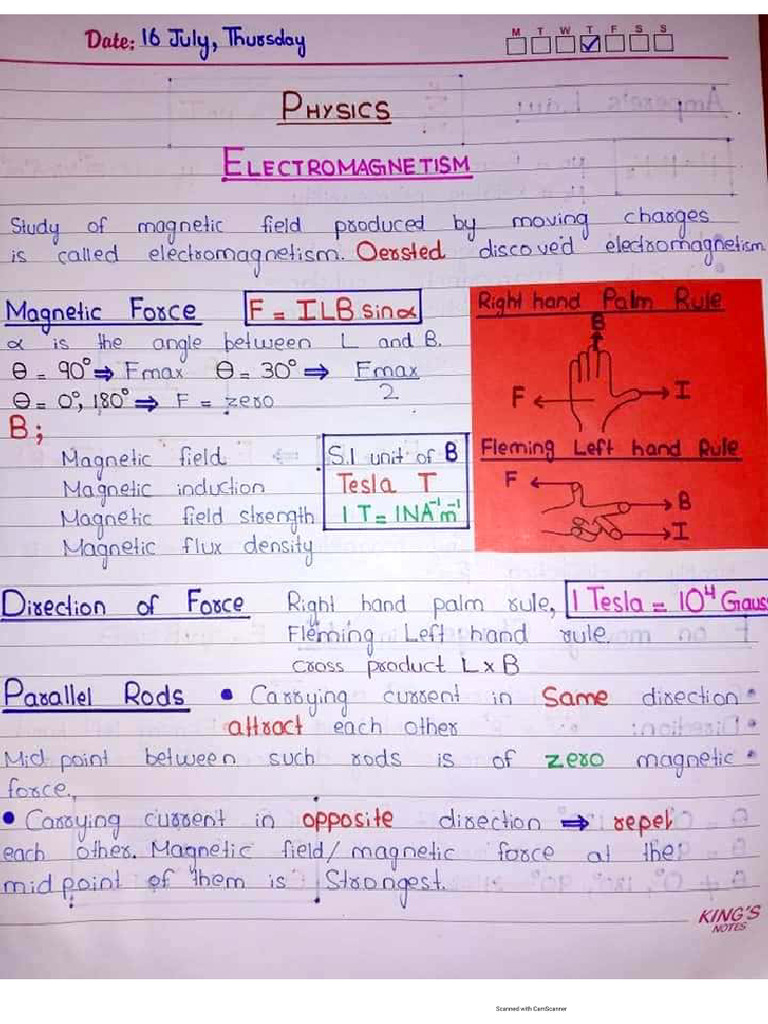 Date: 16 July, Thursday
M T W T F S S
PHYSICS
ELECTROMAGNETISM
Study of magnetic field produced by moving charges
is called electromagnetism. Oersted discoved electromagnetism
Magnetic Force F = ILB sinα
α is the angle between L and B.
θ = 90° ⇒ Fmax θ = 30° ⇒ Fmax/2
θ = 0°, 180° ⇒ F = zero
Right hand Palm Rule
B
F I
Fleming Left hand Rule
F
B
I
B;
Magnetic field
Magnetic induction
Magnetic field strength
Magnetic flux density
S.I unit of B
Tesla T
1 T = 1NA⁻¹m⁻¹
Direction of Force Right hand palm rule, 1 Tesla = 10⁴ Gauss
Fleming Left hand rule.
cross product L x B
Parallel Rods • Carrying current in Same direction
attract each other
Mid point between such rods is of zero magnetic
force.
• Carrying current in opposite direction ⇒ repel
each other. Magnetic field/magnetic force at the
mid point of them is Strongest.
KING'S
NOTES
Scanned with CamScanner